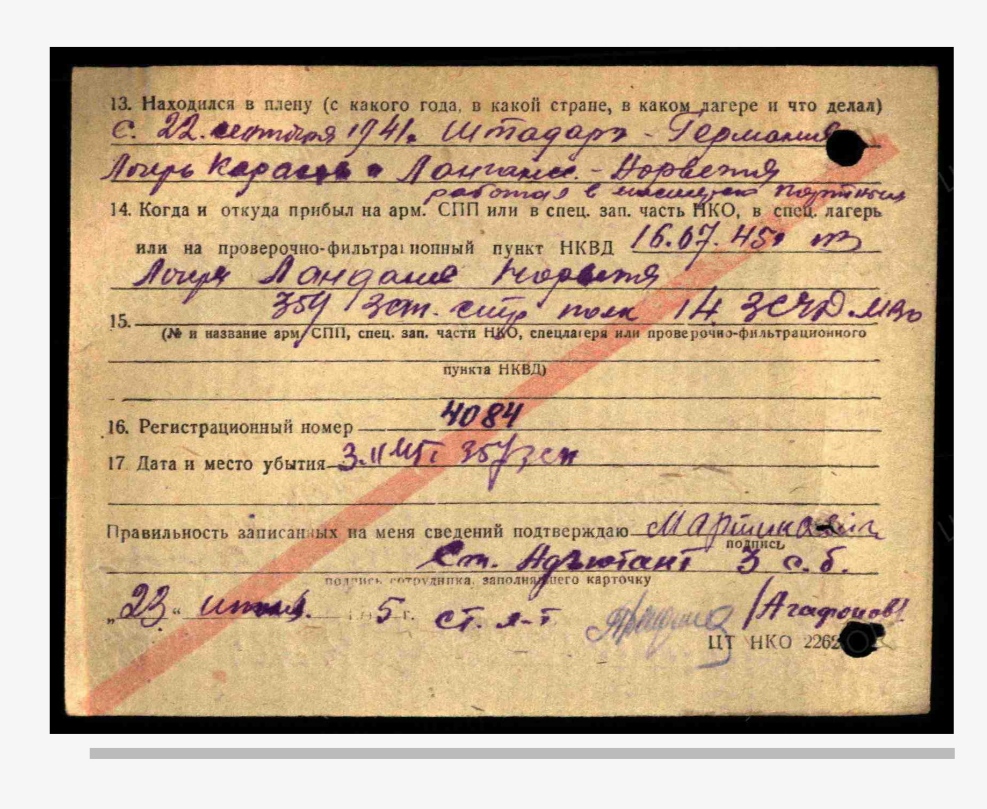 13. Находился в плену (с какого года, в какой стране, в каком лагере и что делал)
с. 22. сентября 1941г. Штадарг - Германия
Лагерь - Норвегия
работал в портным
14. Когда и откуда прибыл на арм. СПП или в спец. зап. часть НКО, в спец. лагерь
или на проверочно-фильтрационный пункт НКВД 16.07.45г из
Лагеря Норвегия
15. 359 зап. стр полк 14 ЗСтД МВО
(№ и название арм. СПП, спец. зап. части НКО, спецлагеря или проверочно-фильтрационного
пункта НКВД)
16. Регистрационный номер 4084
17 Дата и место убытия 359 зсп
Правильность записанных на меня сведений подтверждаю
подпись
Ст. Адъютант 3 с.б.
подпись сотрудника, заполнявшего карточку
„23" 5 г. ст. л-т /Агафонов/
ЦТ НКО 2262